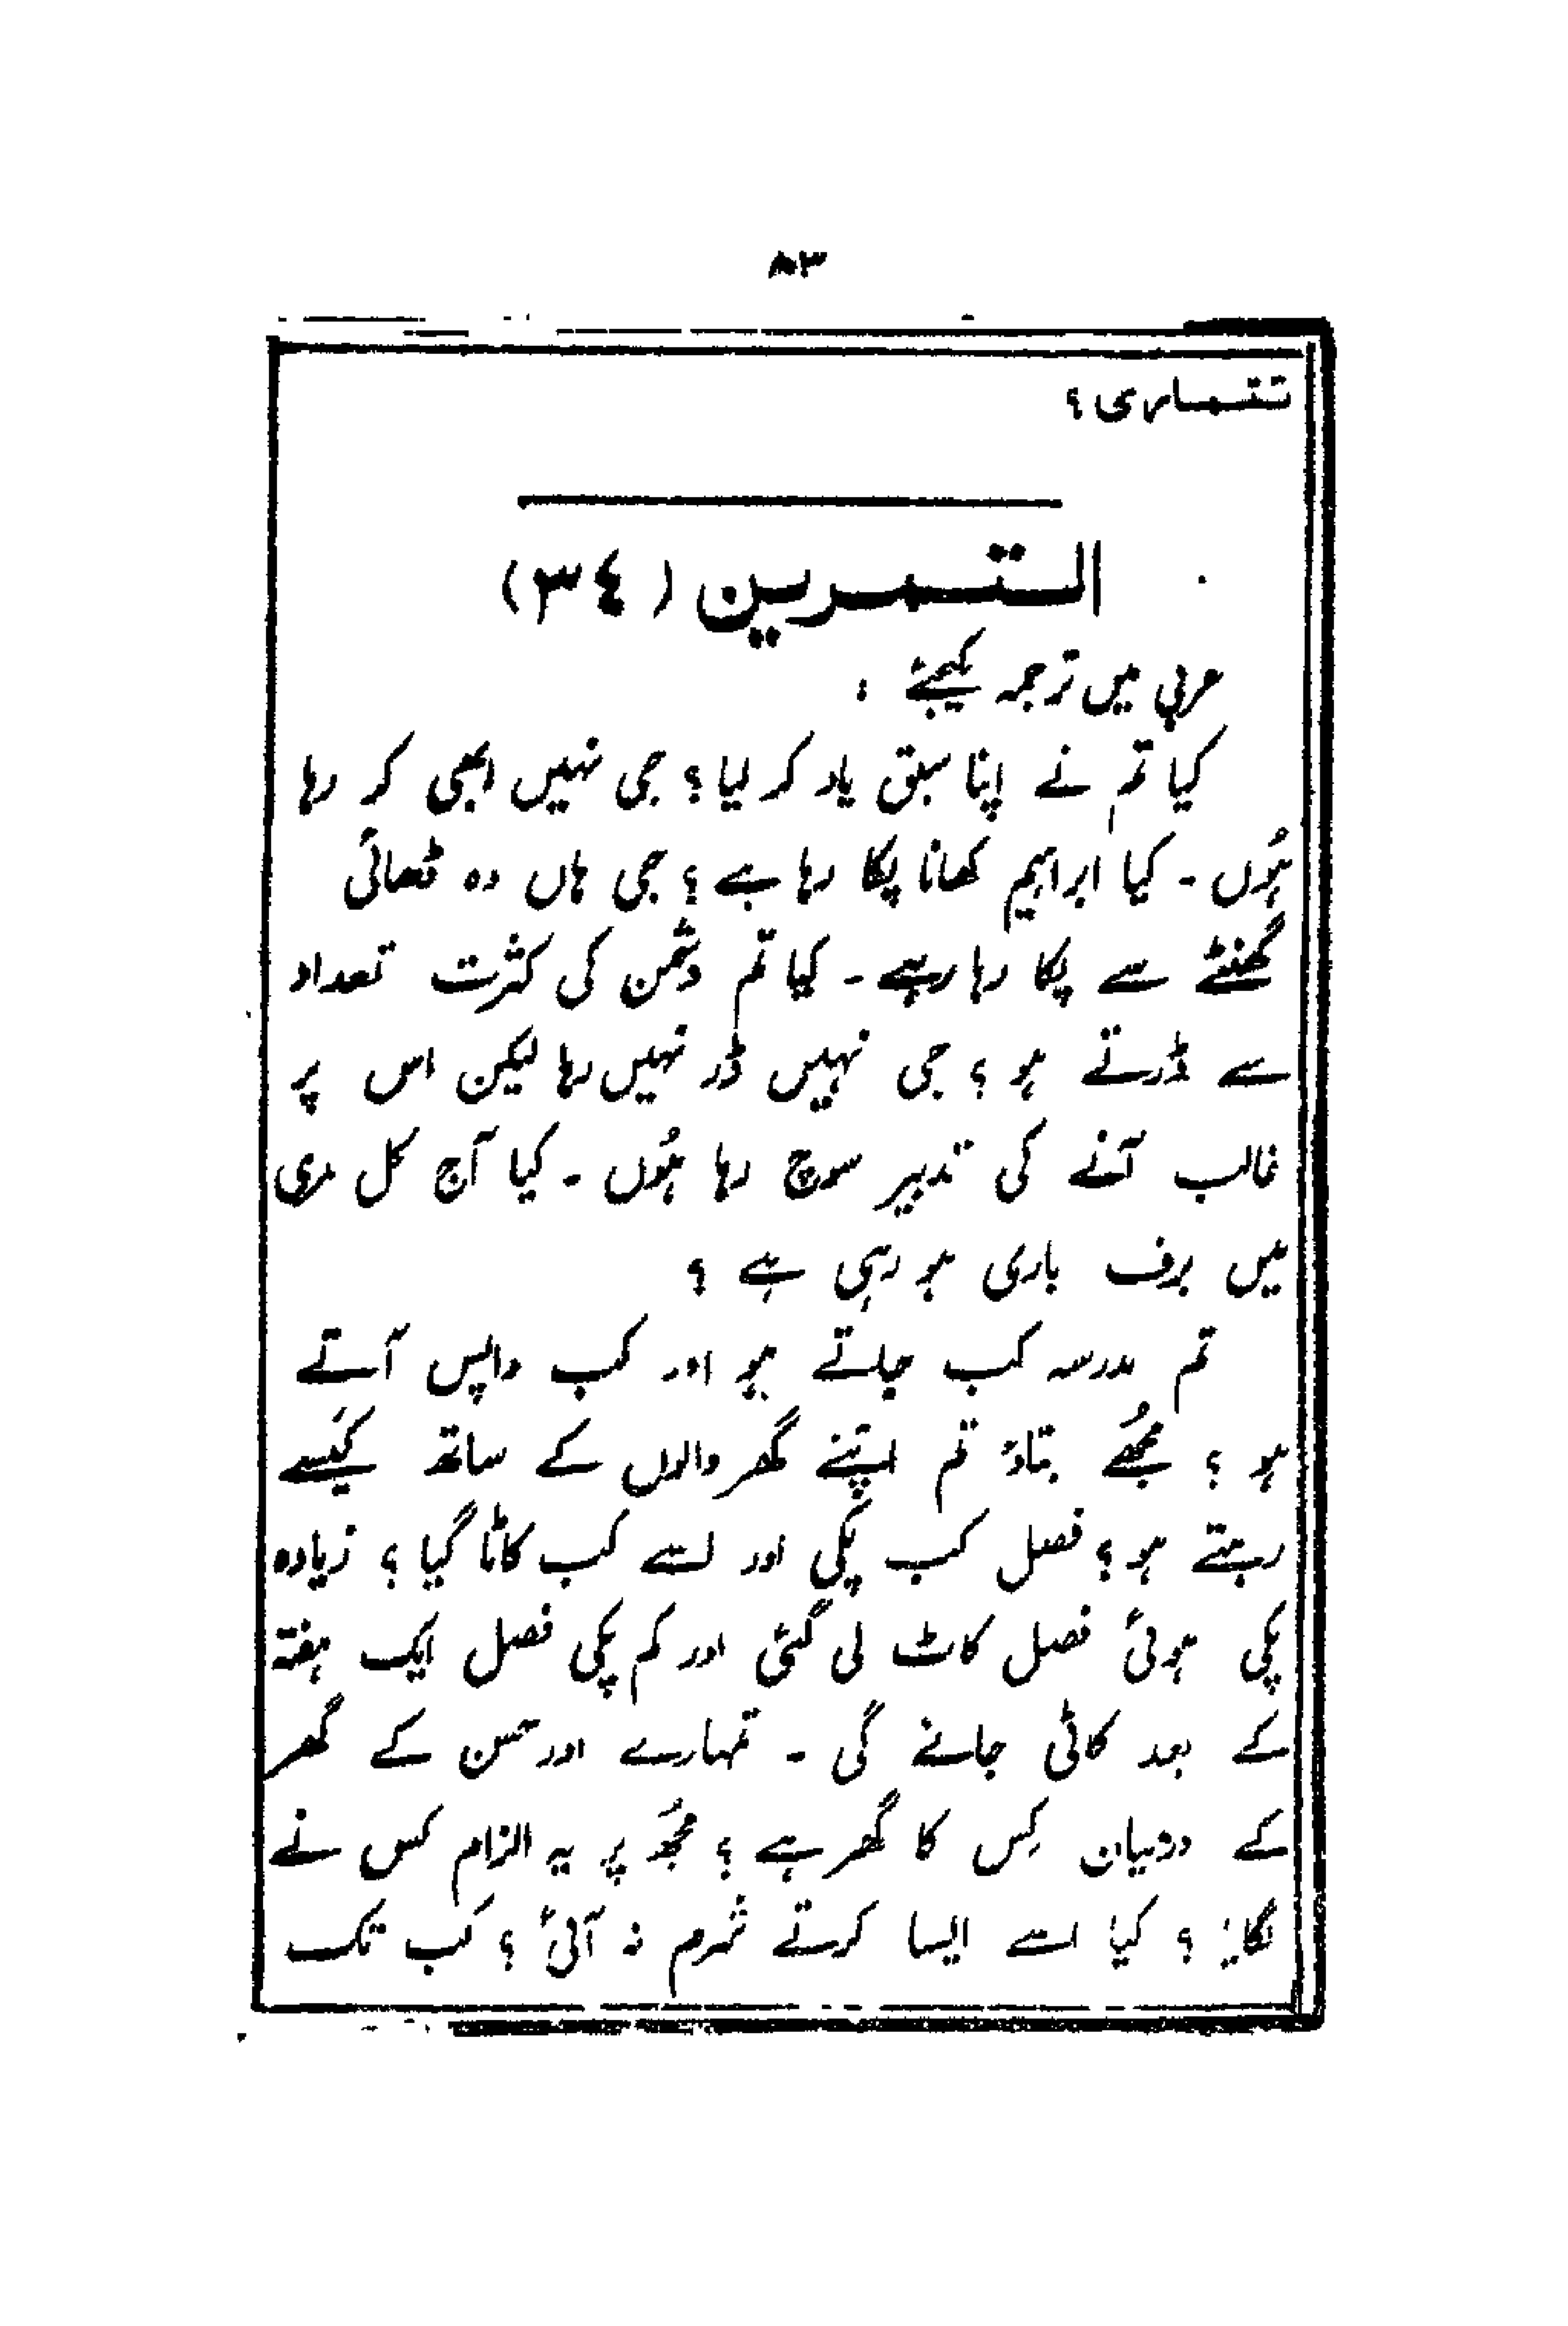 ۸۳
تتمارى ؟
التمرين (٣٤)
عربی میں ترجمہ کیجئے :
کیا تم نے اپنا سبق یاد کر لیا ؟ جی نہیں ابھی کر رہا
ہُوں - کیا ابراہیم کھانا پکا رہا ہے ؟ جی ہاں وہ ڈھائی
گھنٹے سے پکا رہا ہے - کیا تم دشمن کی کثرت تعداد
سے ڈرتے ہو ؟ جی نہیں ڈر نہیں رہا لیکن اس پر
غالب آنے کی تدبیر سوچ رہا ہُوں - کیا آج کل مری
میں برف باری ہو رہی ہے ؟
تم مدرسہ کب جاتے ہو اور کب واپس آتے
ہو ؟ مجُھے بتاؤ تم اپنے گھر والوں کے ساتھ کیَسے
رہتے ہو ؟ فصل کب پکی اور اسے کب کاٹا گیا ؟ زیادہ
پکی ہوئی فصل کاٹ لی گئی اور کم پکی فصل ایک ہفتہ
کے بعد کاٹی جائے گی - تمہارے اور حسن کے گھر
کے درمیان کِس کا گھر ہے ؟ مجُھ پر یہ الزام کس نے
لگایا ؟ کیا اسے ایسا کرتے شرم نہ آئی ؟ کب تک